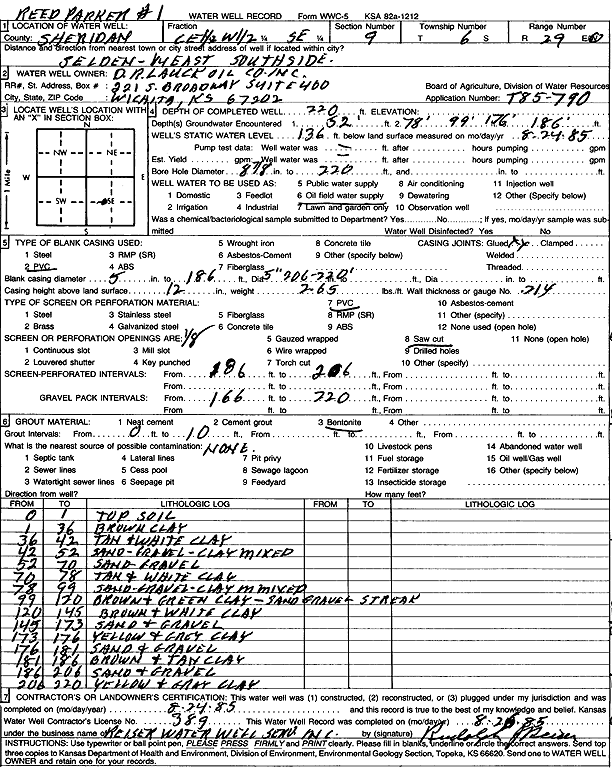 REED PARKER #1 WATER WELL RECORD Form WWC-5 KSA 82a-1212
1 LOCATION OF WATER WELL: Fraction Section Number Township Number Range Number
County: SHERIDAN CE1/2 W1/2 1/4 SE 1/4 9 T 6 S R 29 E/W
Distance and direction from nearest town or city street address of well if located within city?
SELDEN-WEAST SOUTHSIDE.
2 WATER WELL OWNER: D.R. LAUCK OIL CO-INC.
RR#, St. Address, Box #: 221 S. BROADWAY SUITE 400 Board of Agriculture, Division of Water Resources
City, State, ZIP Code : WICHITA, KS 67202 Application Number: T85-790
3 LOCATE WELL'S LOCATION WITH AN "X" IN SECTION BOX:
N
NW NE
W E
SW SE
S
1 Mile
4 DEPTH OF COMPLETED WELL 220 ft. ELEVATION:
Depth(s) Groundwater Encountered 1. 52' ft. 2. 78' 99' 176' 186'
WELL'S STATIC WATER LEVEL 136 ft. below land surface measured on mo/day/yr 8-24-85
Pump test data: Well water was ft. after hours pumping gpm
Est. Yield gpm: Well water was ft. after hours pumping gpm
Bore Hole Diameter 8 7/8 in. to 220 ft., and in. to ft.
WELL WATER TO BE USED AS: 5 Public water supply 8 Air conditioning 11 Injection well
1 Domestic 3 Feedlot 6 Oil field water supply 9 Dewatering 12 Other (Specify below)
2 Irrigation 4 Industrial 7 Lawn and garden only 10 Observation well
Was a chemical/bacteriological sample submitted to Department? Yes No ; If yes, mo/day/yr sample was submitted
Water Well Disinfected? Yes No
5 TYPE OF BLANK CASING USED: 5 Wrought iron 8 Concrete tile CASING JOINTS: Glued Clamped
1 Steel 3 RMP (SR) 6 Asbestos-Cement 9 Other (specify below) Welded
2 PVC 4 ABS 7 Fiberglass Threaded
Blank casing diameter 5 in. to 186 ft., Dia 5" 206-220' ft., Dia in. to ft.
Casing height above land surface 12 in., weight 2.65 lbs./ft. Wall thickness or gauge No. .214
TYPE OF SCREEN OR PERFORATION MATERIAL: 7 PVC 10 Asbestos-cement
1 Steel 3 Stainless steel 5 Fiberglass 8 RMP (SR) 11 Other (specify)
2 Brass 4 Galvanized steel 6 Concrete tile 9 ABS 12 None used (open hole)
SCREEN OR PERFORATION OPENINGS ARE: 1/8 5 Gauzed wrapped 8 Saw cut 11 None (open hole)
1 Continuous slot 3 Mill slot 6 Wire wrapped 9 Drilled holes
2 Louvered shutter 4 Key punched 7 Torch cut 10 Other (specify)
SCREEN-PERFORATED INTERVALS: From 186 ft. to 206 ft., From ft. to ft.
From ft. to ft., From ft. to ft.
GRAVEL PACK INTERVALS: From 166 ft. to 220 ft., From ft. to ft.
From ft. to ft., From ft. to ft.
6 GROUT MATERIAL: 1 Neat cement 2 Cement grout 3 Bentonite 4 Other
Grout Intervals: From 0 ft. to 10 ft., From ft. to ft., From ft. to ft.
What is the nearest source of possible contamination: NONE. 10 Livestock pens 14 Abandoned water well
1 Septic tank 4 Lateral lines 7 Pit privy 11 Fuel storage 15 Oil well/Gas well
2 Sewer lines 5 Cess pool 8 Sewage lagoon 12 Fertilizer storage 16 Other (specify below)
3 Watertight sewer lines 6 Seepage pit 9 Feedyard 13 Insecticide storage
Direction from well? How many feet?
FROM TO LITHOLOGIC LOG FROM TO LITHOLOGIC LOG
0 1 TOP SOIL
1 36 BROWN CLAY
36 42 TAN & WHITE CLAY
42 52 SAND-GRAVEL-CLAY MIXED
52 70 SAND-GRAVEL
70 78 TAN & WHITE CLAY
78 99 SAND-GRAVEL-CLAY MMIXED
99 120 BROWN & GREEN CLAY-SAND GRAVEL STREAK
120 145 BROWN & WHITE CLAY
145 173 SAND & GRAVEL
173 176 YELLOW & GREY CLAY
176 181 SAND & GRAVEL
181 186 BROWN & TAN CLAY
186 206 SAND & GRAVEL
206 220 YELLOW & GRAY CLAY
7 CONTRACTOR'S OR LANDOWNER'S CERTIFICATION: This water well was (1) constructed, (2) reconstructed, or (3) plugged under my jurisdiction and was
completed on (mo/day/year) 8-24-85 and this record is true to the best of my knowledge and belief. Kansas
Water Well Contractor's License No. 389 This Water Well Record was completed on (mo/day/yr) 85
under the business name of REISER WATER WELL SERV INC. by (signature) Rudolph Reiser
INSTRUCTIONS: Use typewriter or ball point pen, PLEASE PRESS FIRMLY and PRINT clearly. Please fill in blanks, underline or circle the correct answers. Send top
three copies to Kansas Department of Health and Environment, Division of Environment, Environmental Geology Section, Topeka, KS 66620. Send one to WATER WELL
OWNER and retain one for your records.